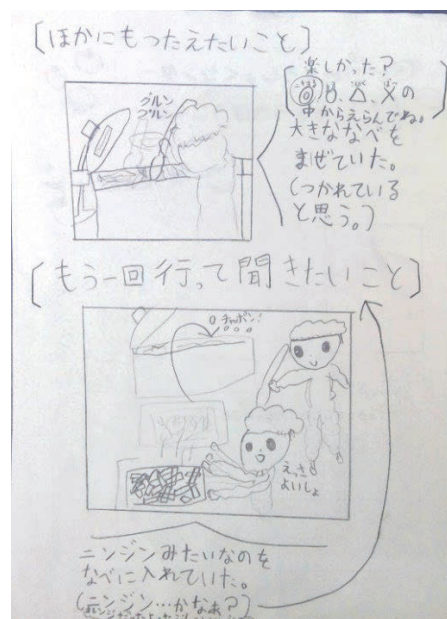 [ほかにもつたえたいこと]
楽しかった?
◎、○、△、✕の
中からえらんでね。
大きななべを
まぜていた。
(つかれている
と思う。)
グルン
グルン
[もう一回行って聞きたいこと]
チャポン!
えっさ
よいしょ
ニンジンみたいなのを
なべに入れていた。
(ニンジン…かなぁ?)